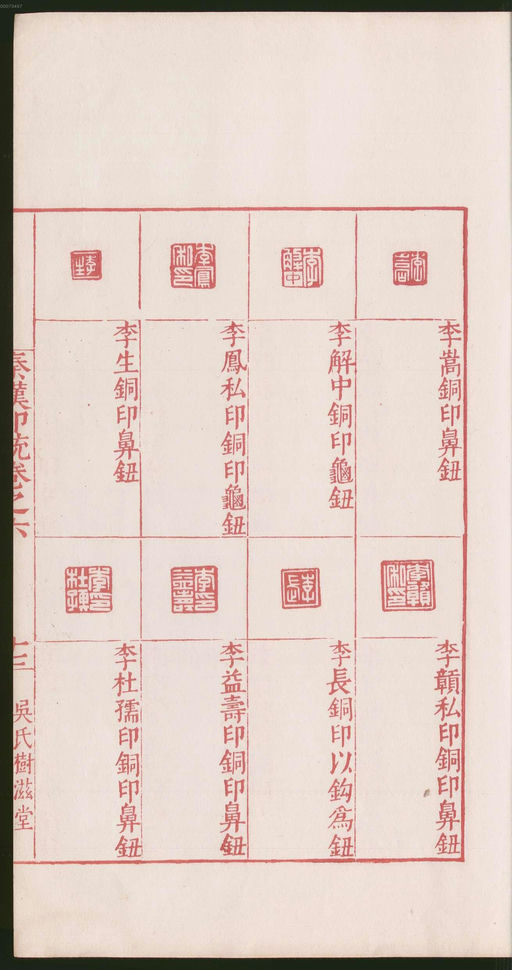 李嵩銅印鼻鈕
李解中銅印龜鈕
李鳳私印銅印龜鈕
李生銅印鼻鈕
李贛私印銅印鼻鈕
李長銅印以鈎爲鈕
李益壽印銅印鼻鈕
李杜孺印銅印鼻鈕
秦漢印統卷之六
十三
吳氏樹滋堂